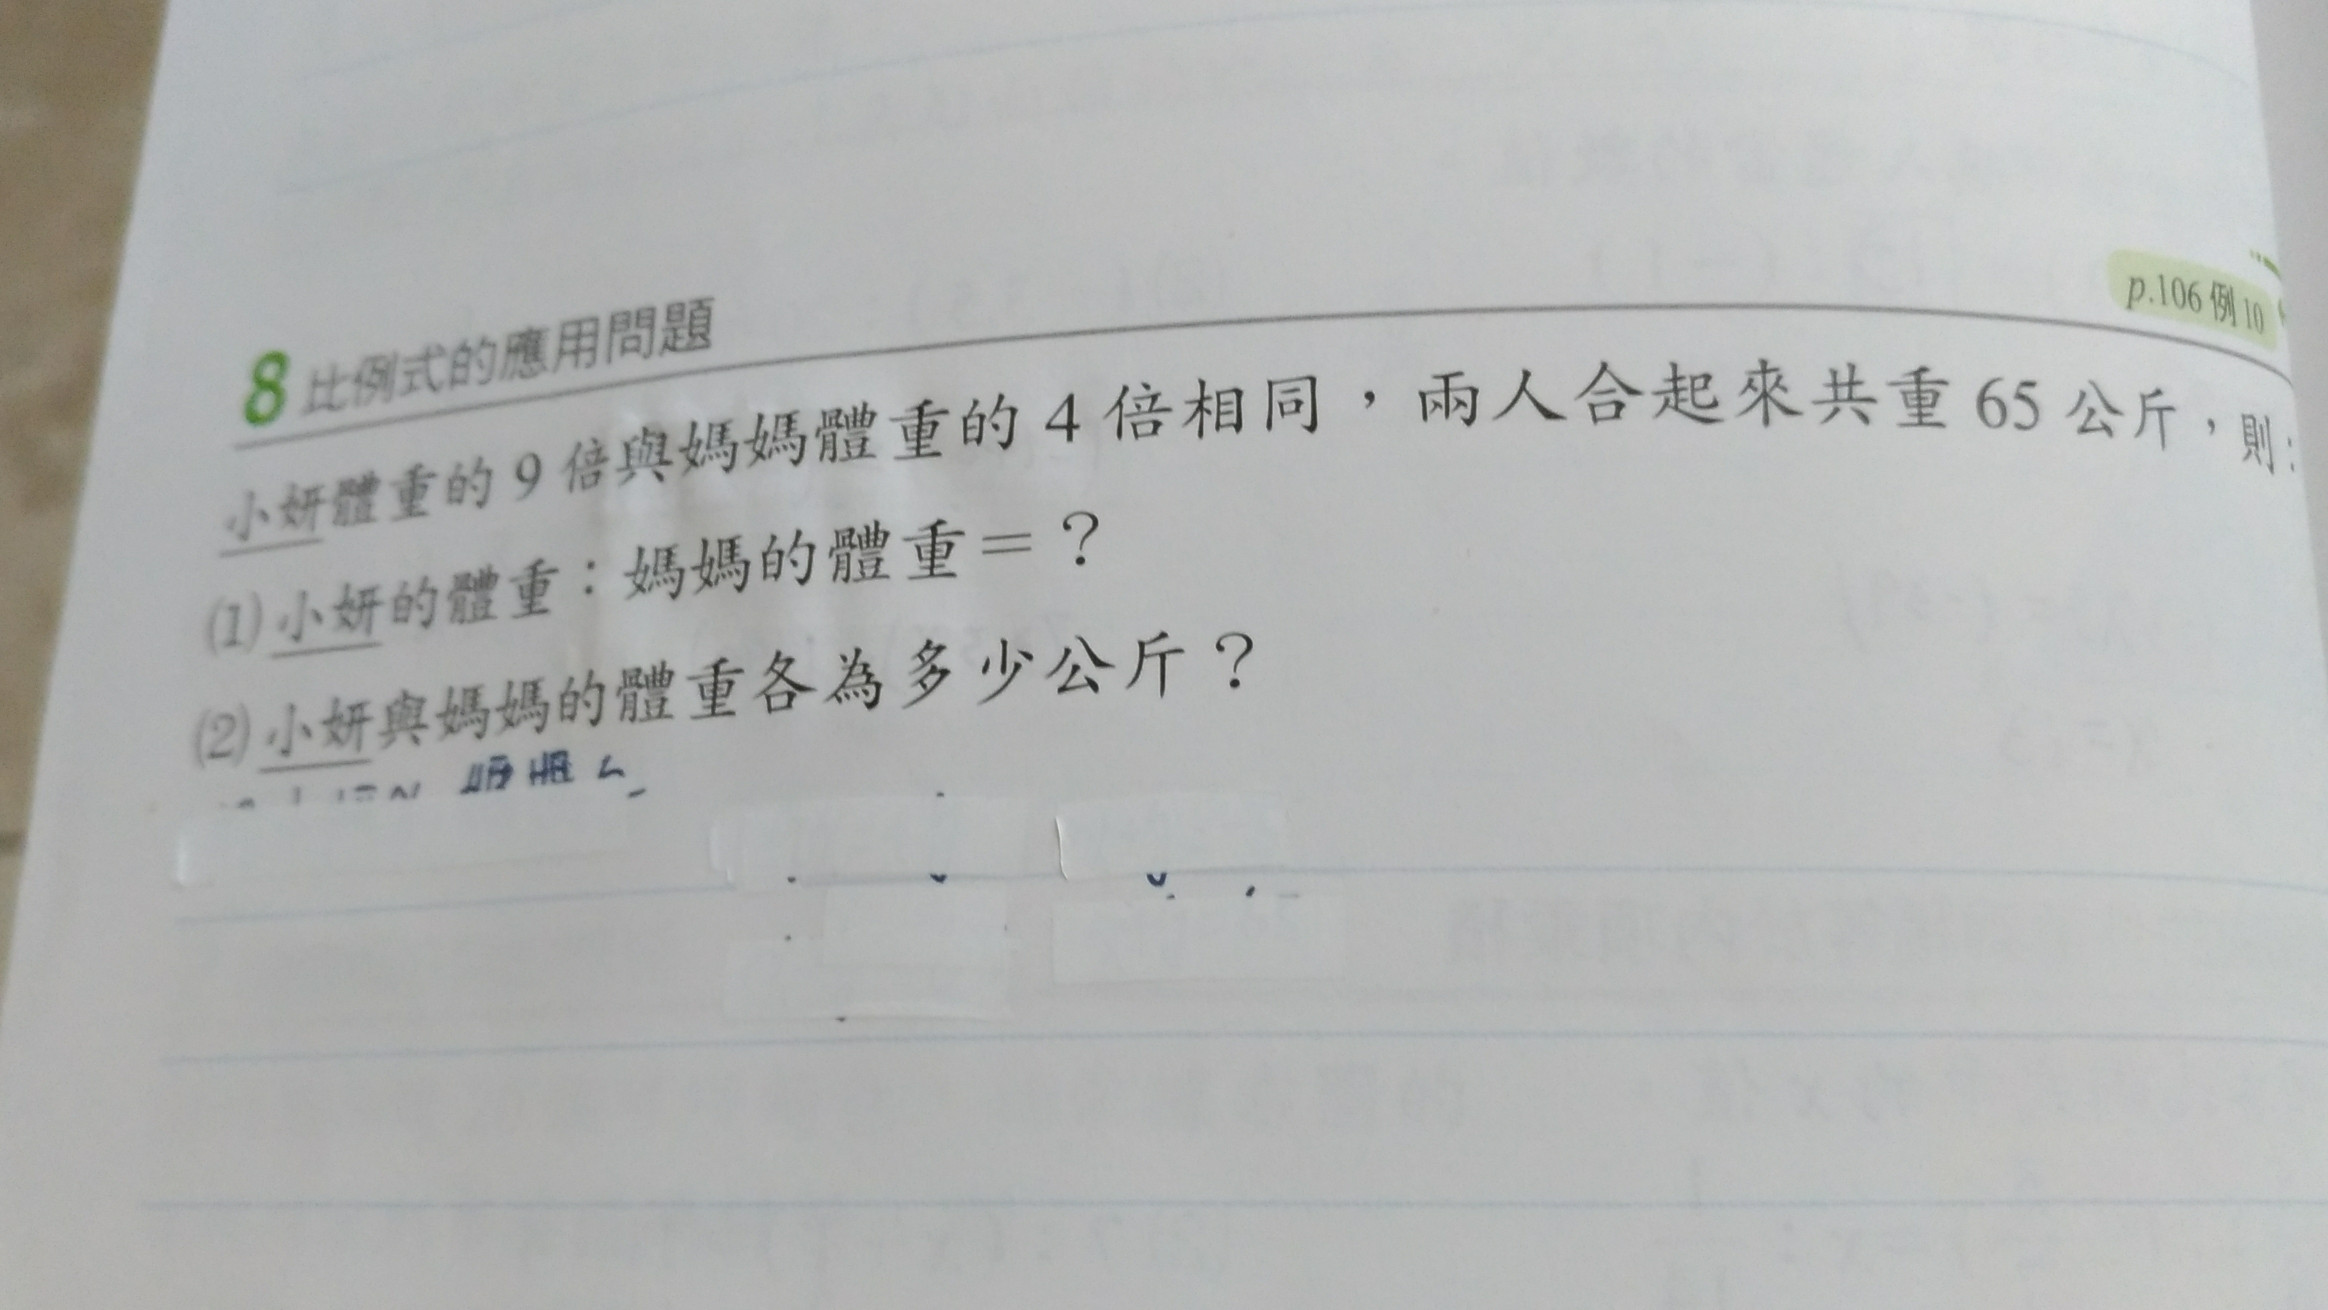 p.106 例 10
8 比例式的應用問題
小妍體重的 9 倍與媽媽體重的 4 倍相同，兩人合起來共重 65 公斤，則：
(1) 小妍的體重：媽媽的體重＝？
(2) 小妍與媽媽的體重各為多少公斤？